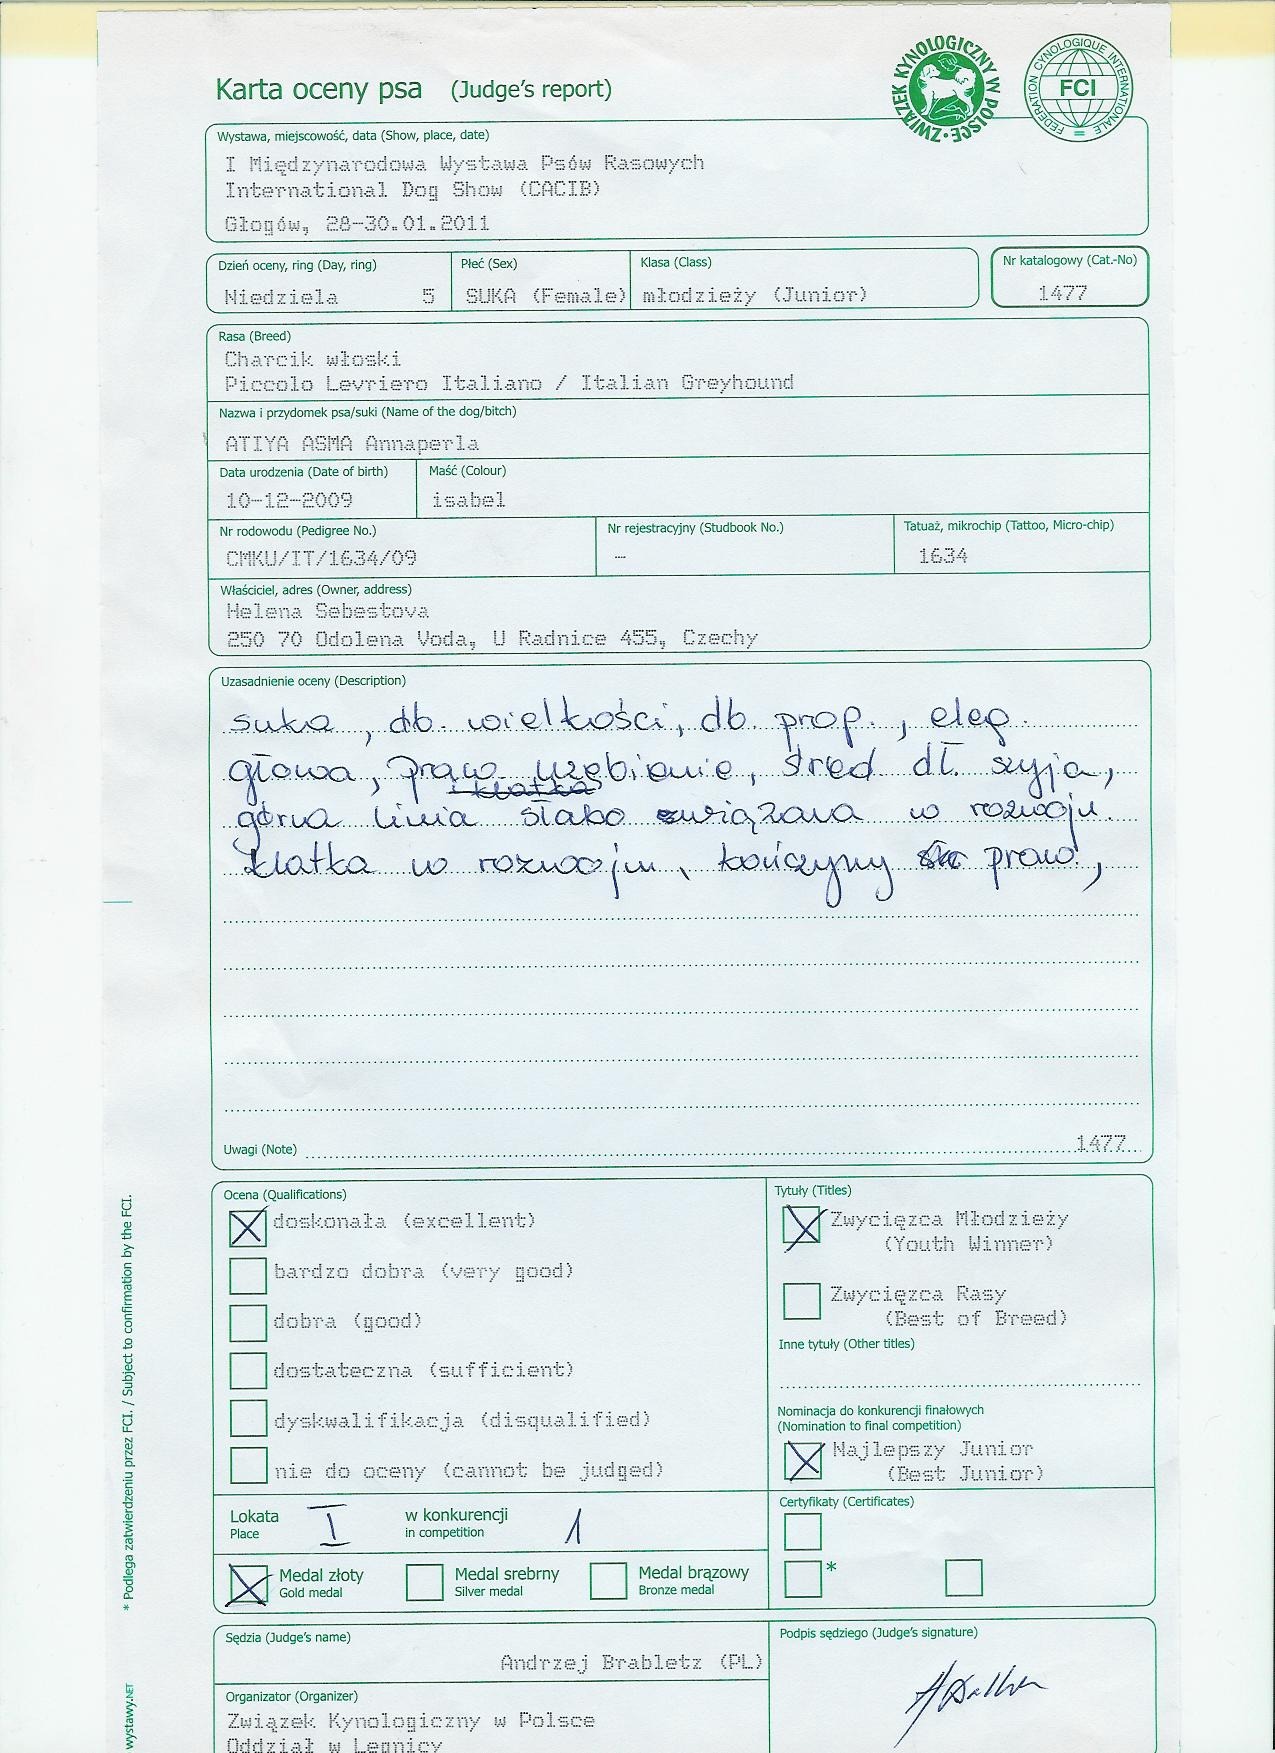 Karta oceny psa (Judge's report)
ZWIĄZEK KYNOLOGICZNY W POLSCE
FEDERATION CYNOLOGIQUE INTERNATIONALE
FCI
Wystawa, miejscowość, data (Show, place, date)
I Międzynarodowa Wystawa Psów Rasowych
International Dog Show (CACIB)
Głogów, 28-30.01.2011
Dzień oceny, ring (Day, ring) Płeć (Sex) Klasa (Class) Nr katalogowy (Cat.-No)
Niedziela 5 SUKA (Female) młodzieży (Junior) 1477
Rasa (Breed)
Charcik włoski
Piccolo Levriero Italiano / Italian Greyhound
Nazwa i przydomek psa/suki (Name of the dog/bitch)
ATIYA ASMA Annaperla
Data urodzenia (Date of birth) Maść (Colour)
10-12-2009 isabel
Nr rodowodu (Pedigree No.) Nr rejestracyjny (Studbook No.) Tatuaż, mikrochip (Tattoo, Micro-chip)
CMKU/IT/1634/09 — 1634
Właściciel, adres (Owner, address)
Helena Sebestova
250 70 Odolena Voda, U Radnice 455, Czechy
Uzasadnienie oceny (Description)
suka, db. wielkości, db. prop., eleg.
głowa, praw. uzębienie, śred dł. szyja,
i klatka
górna linia słabo związana w rozwoju.
klatka w rozwoju, kończyny praw.,
Uwagi (Note) 1477
Ocena (Qualifications)
doskonała (excellent)
bardzo dobra (very good)
dobra (good)
dostateczna (sufficient)
dyskwalifikacja (disqualified)
nie do oceny (cannot be judged)
Tytuły (Titles)
Zwycięzca Młodzieży
(Youth Winner)
Zwycięzca Rasy
(Best of Breed)
Inne tytuły (Other titles)
Nominacja do konkurencji finałowych
(Nomination to final competition)
Najlepszy Junior
(Best Junior)
Lokata I w konkurencji 1
Place in competition
Medal złoty Medal srebrny Medal brązowy
Gold medal Silver medal Bronze medal
Certyfikaty (Certificates)
*
Sędzia (Judge's name)
Andrzej Brabletz (PL)
Podpis sędziego (Judge's signature)
Organizator (Organizer)
Związek Kynologiczny w Polsce
Oddział w Legnicy
* Podlega zatwierdzeniu przez FCI. / Subject to confirmation by the FCI.
wystawy.NET